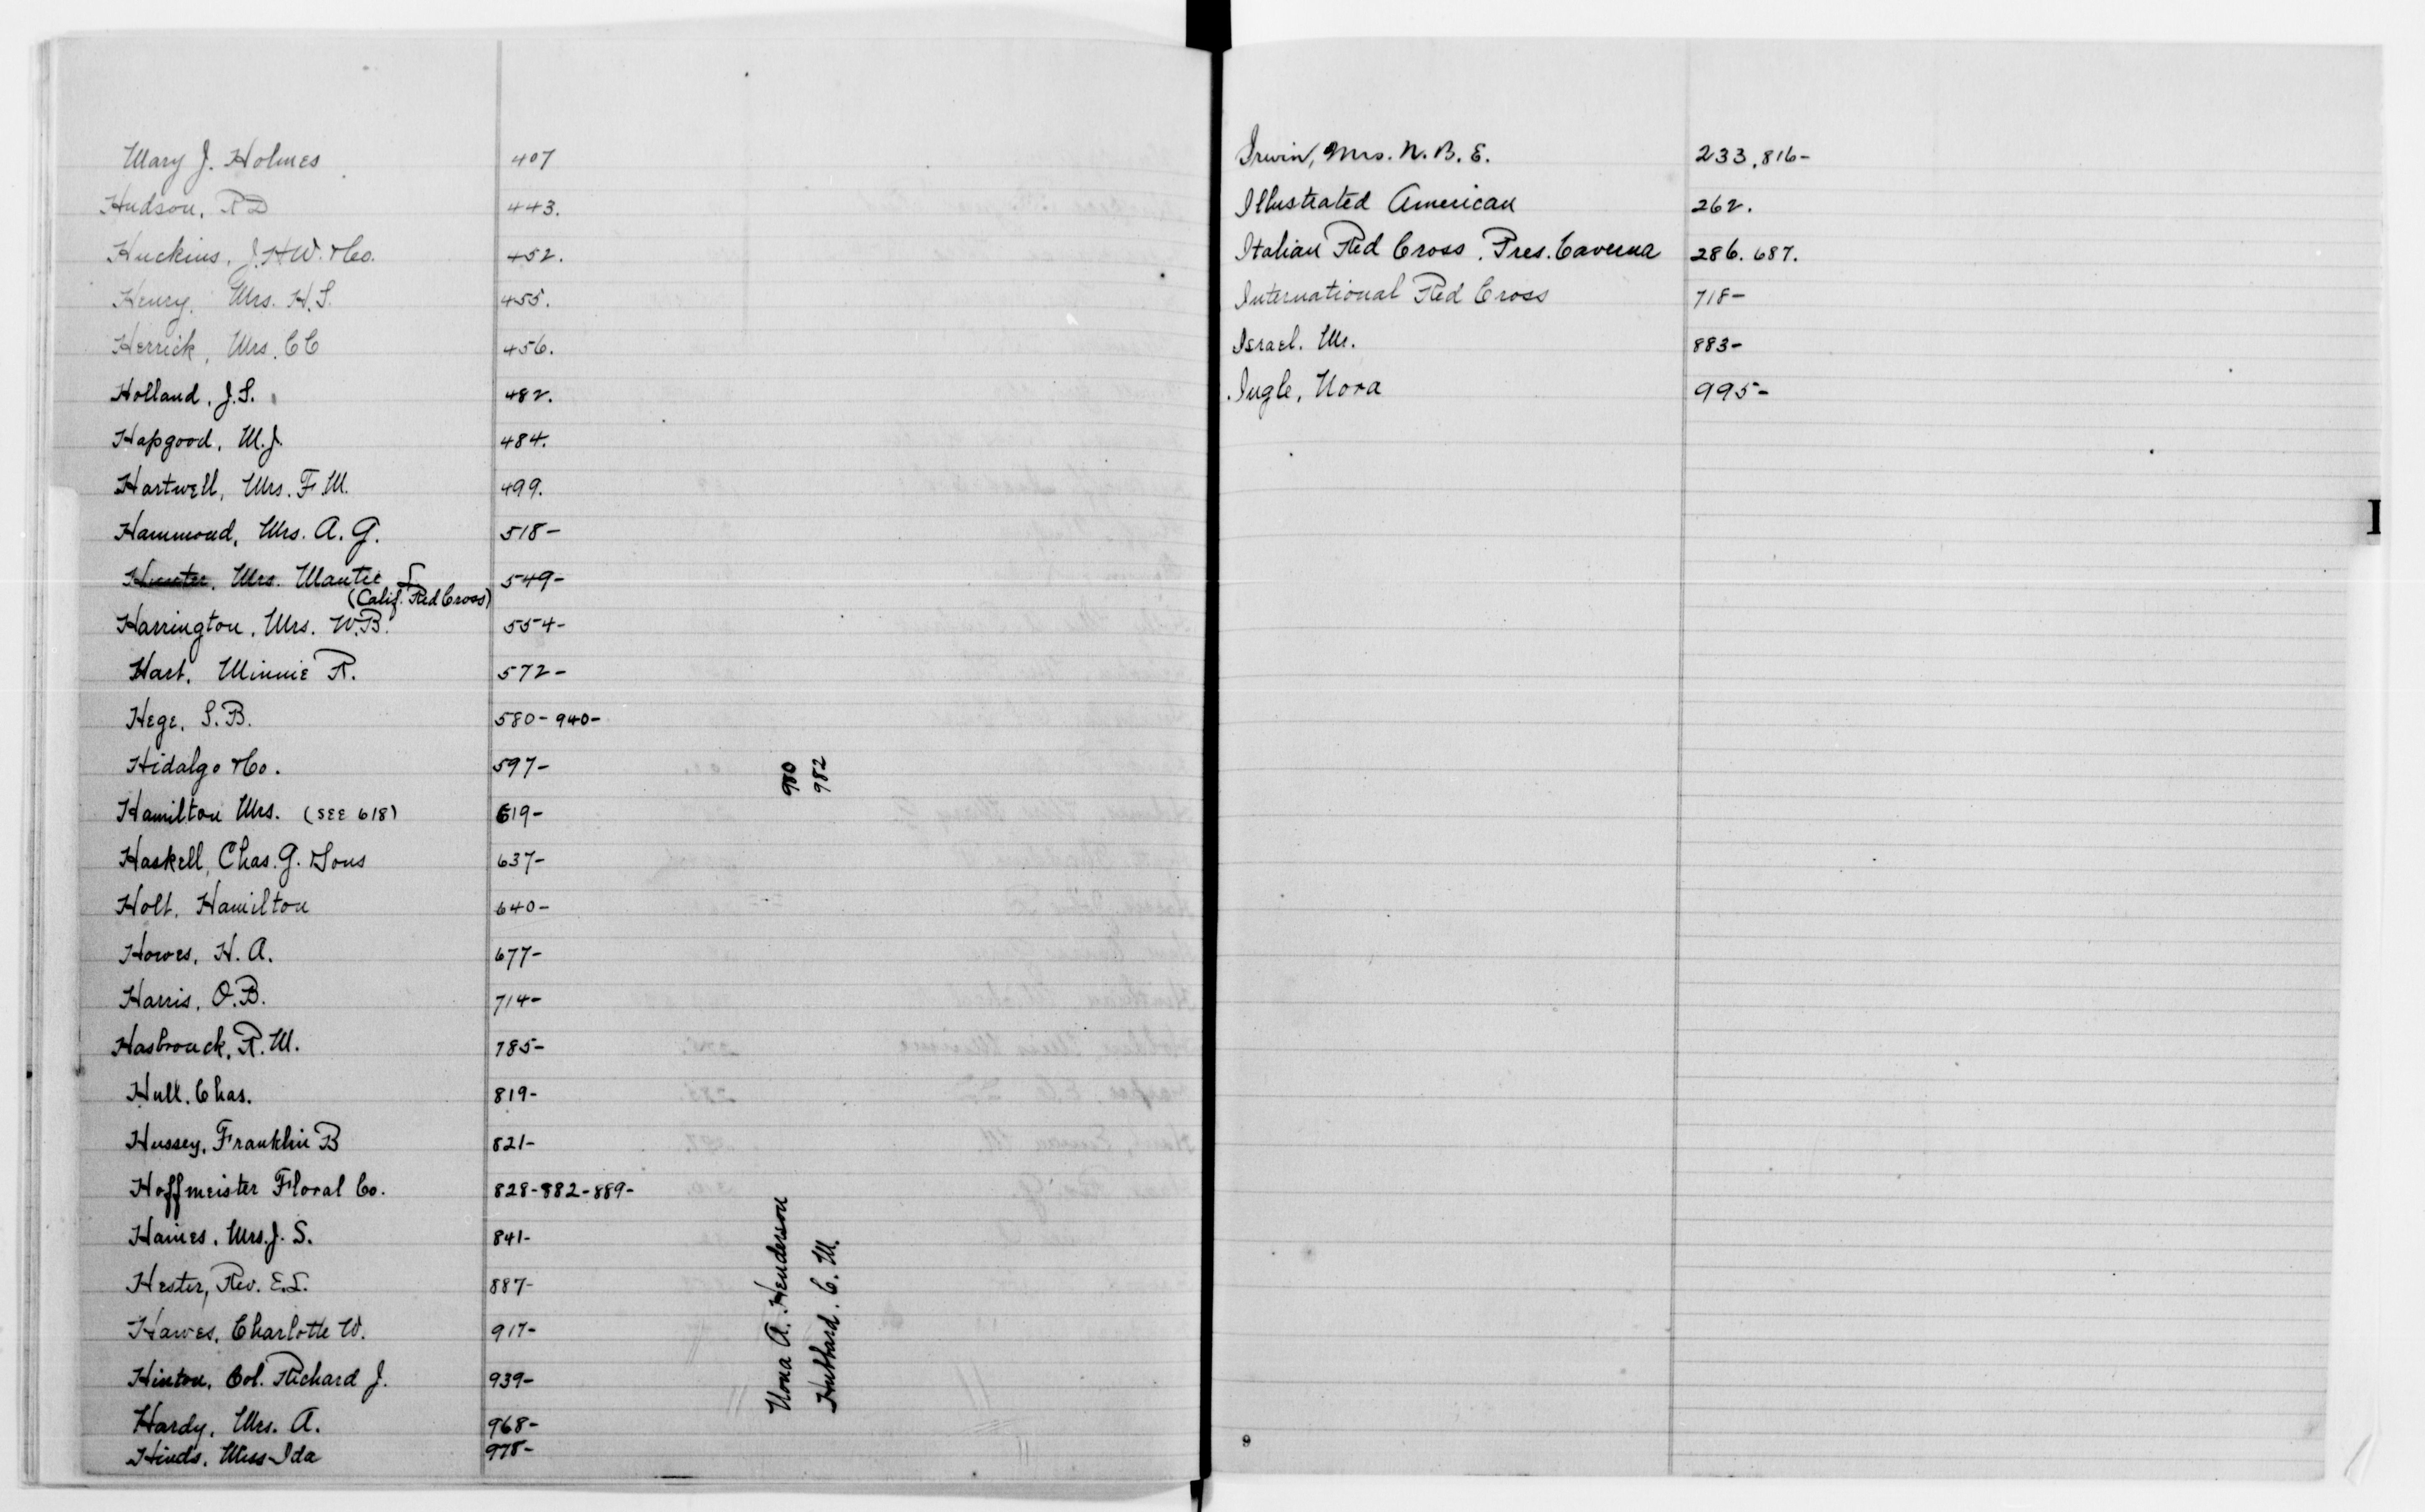 Mary J. Holmes 407
Hudson, RD 443.
Huckins, J.H.W. & Co. 452.
Henry, Mrs. H.S. 455.
Herrick, Mrs. CC 456.
Holland, J.S. 482.
Hapgood, M.J. 484.
Hartwell, Mrs. F.M. 499.
Hammond, Mrs. A. G. 518-
Hunter, Mrs. Mantie L 549-
(Calif. Red Cross)
Harrington, Mrs. W.B. 554-
Hart, Minnie R. 572-
Hege, S.B. 580-940-
Hidalgo & Co. 597-
Hamilton Mrs. (SEE 618) 619-
Haskell, Chas. G. & Sons 637-
Holt, Hamilton 640-
Howes, H. A. 677-
Harris, O.B. 714-
Hasbrouck, R.M. 785-
Hull, Chas. 819-
Hussey, Franklin B 821-
Hoffmeister Floral Co. 828-882-889-
Haines, Mrs. J. S. 841-
Hester, Rev. E.L. 887-
Hawes, Charlotte W. 917-
Hinton, Col. Richard J. 939-
Hardy, Mrs. A. 968-
Hinds, Miss Ida 978-
Nona A. Henderson 980
Hubbard, C. M. 982
Irwin, Mrs. N. B. E. 233, 816-
Illustrated American 262.
Italian Red Cross. Pres. Caverna 286. 687.
International Red Cross 718-
Israel. Mr. 883-
Ingle, Nora 995-
I
9